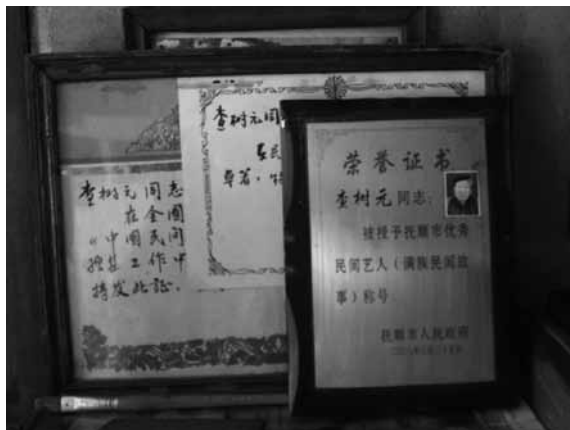 查树元同志
在全国
《中国民间
工作中
特发此证。
查树元同
卓著，特
荣誉证书
查树元同志：
被授予抚顺市优秀
民间艺人（满族民间故
事）称号
抚顺市人民政府